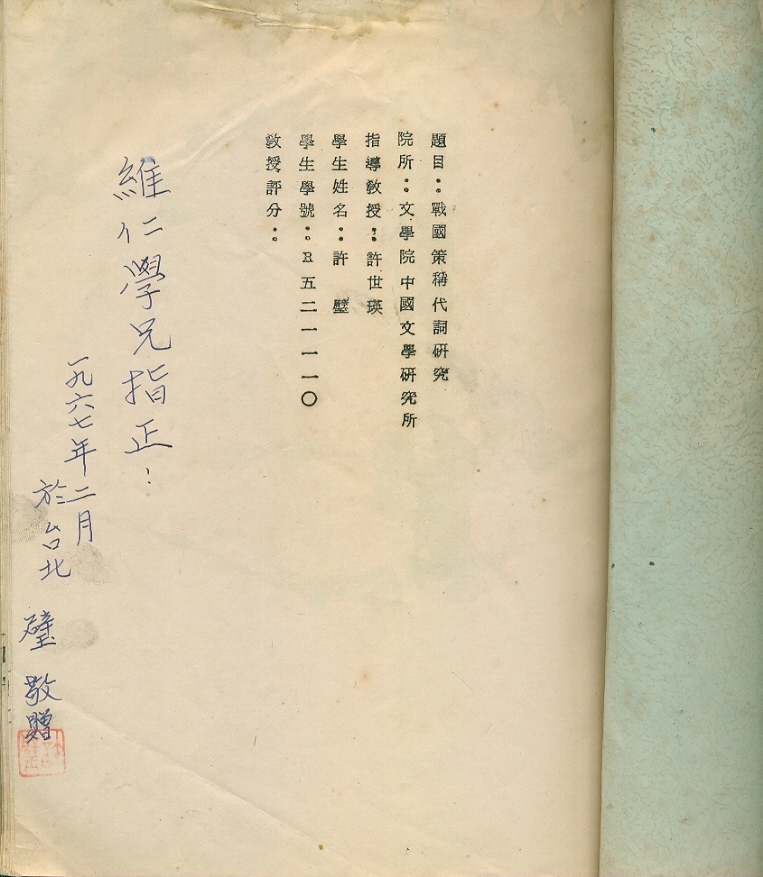 題目：戰國策稱代詞研究
院所：文學院中國文學研究所
指導教授：許世瑛
學生姓名：許璧
學生學號：R五二一一一〇
教授評分：
維仁學兄指正：
一九六七年二月
於台北
璧敬贈